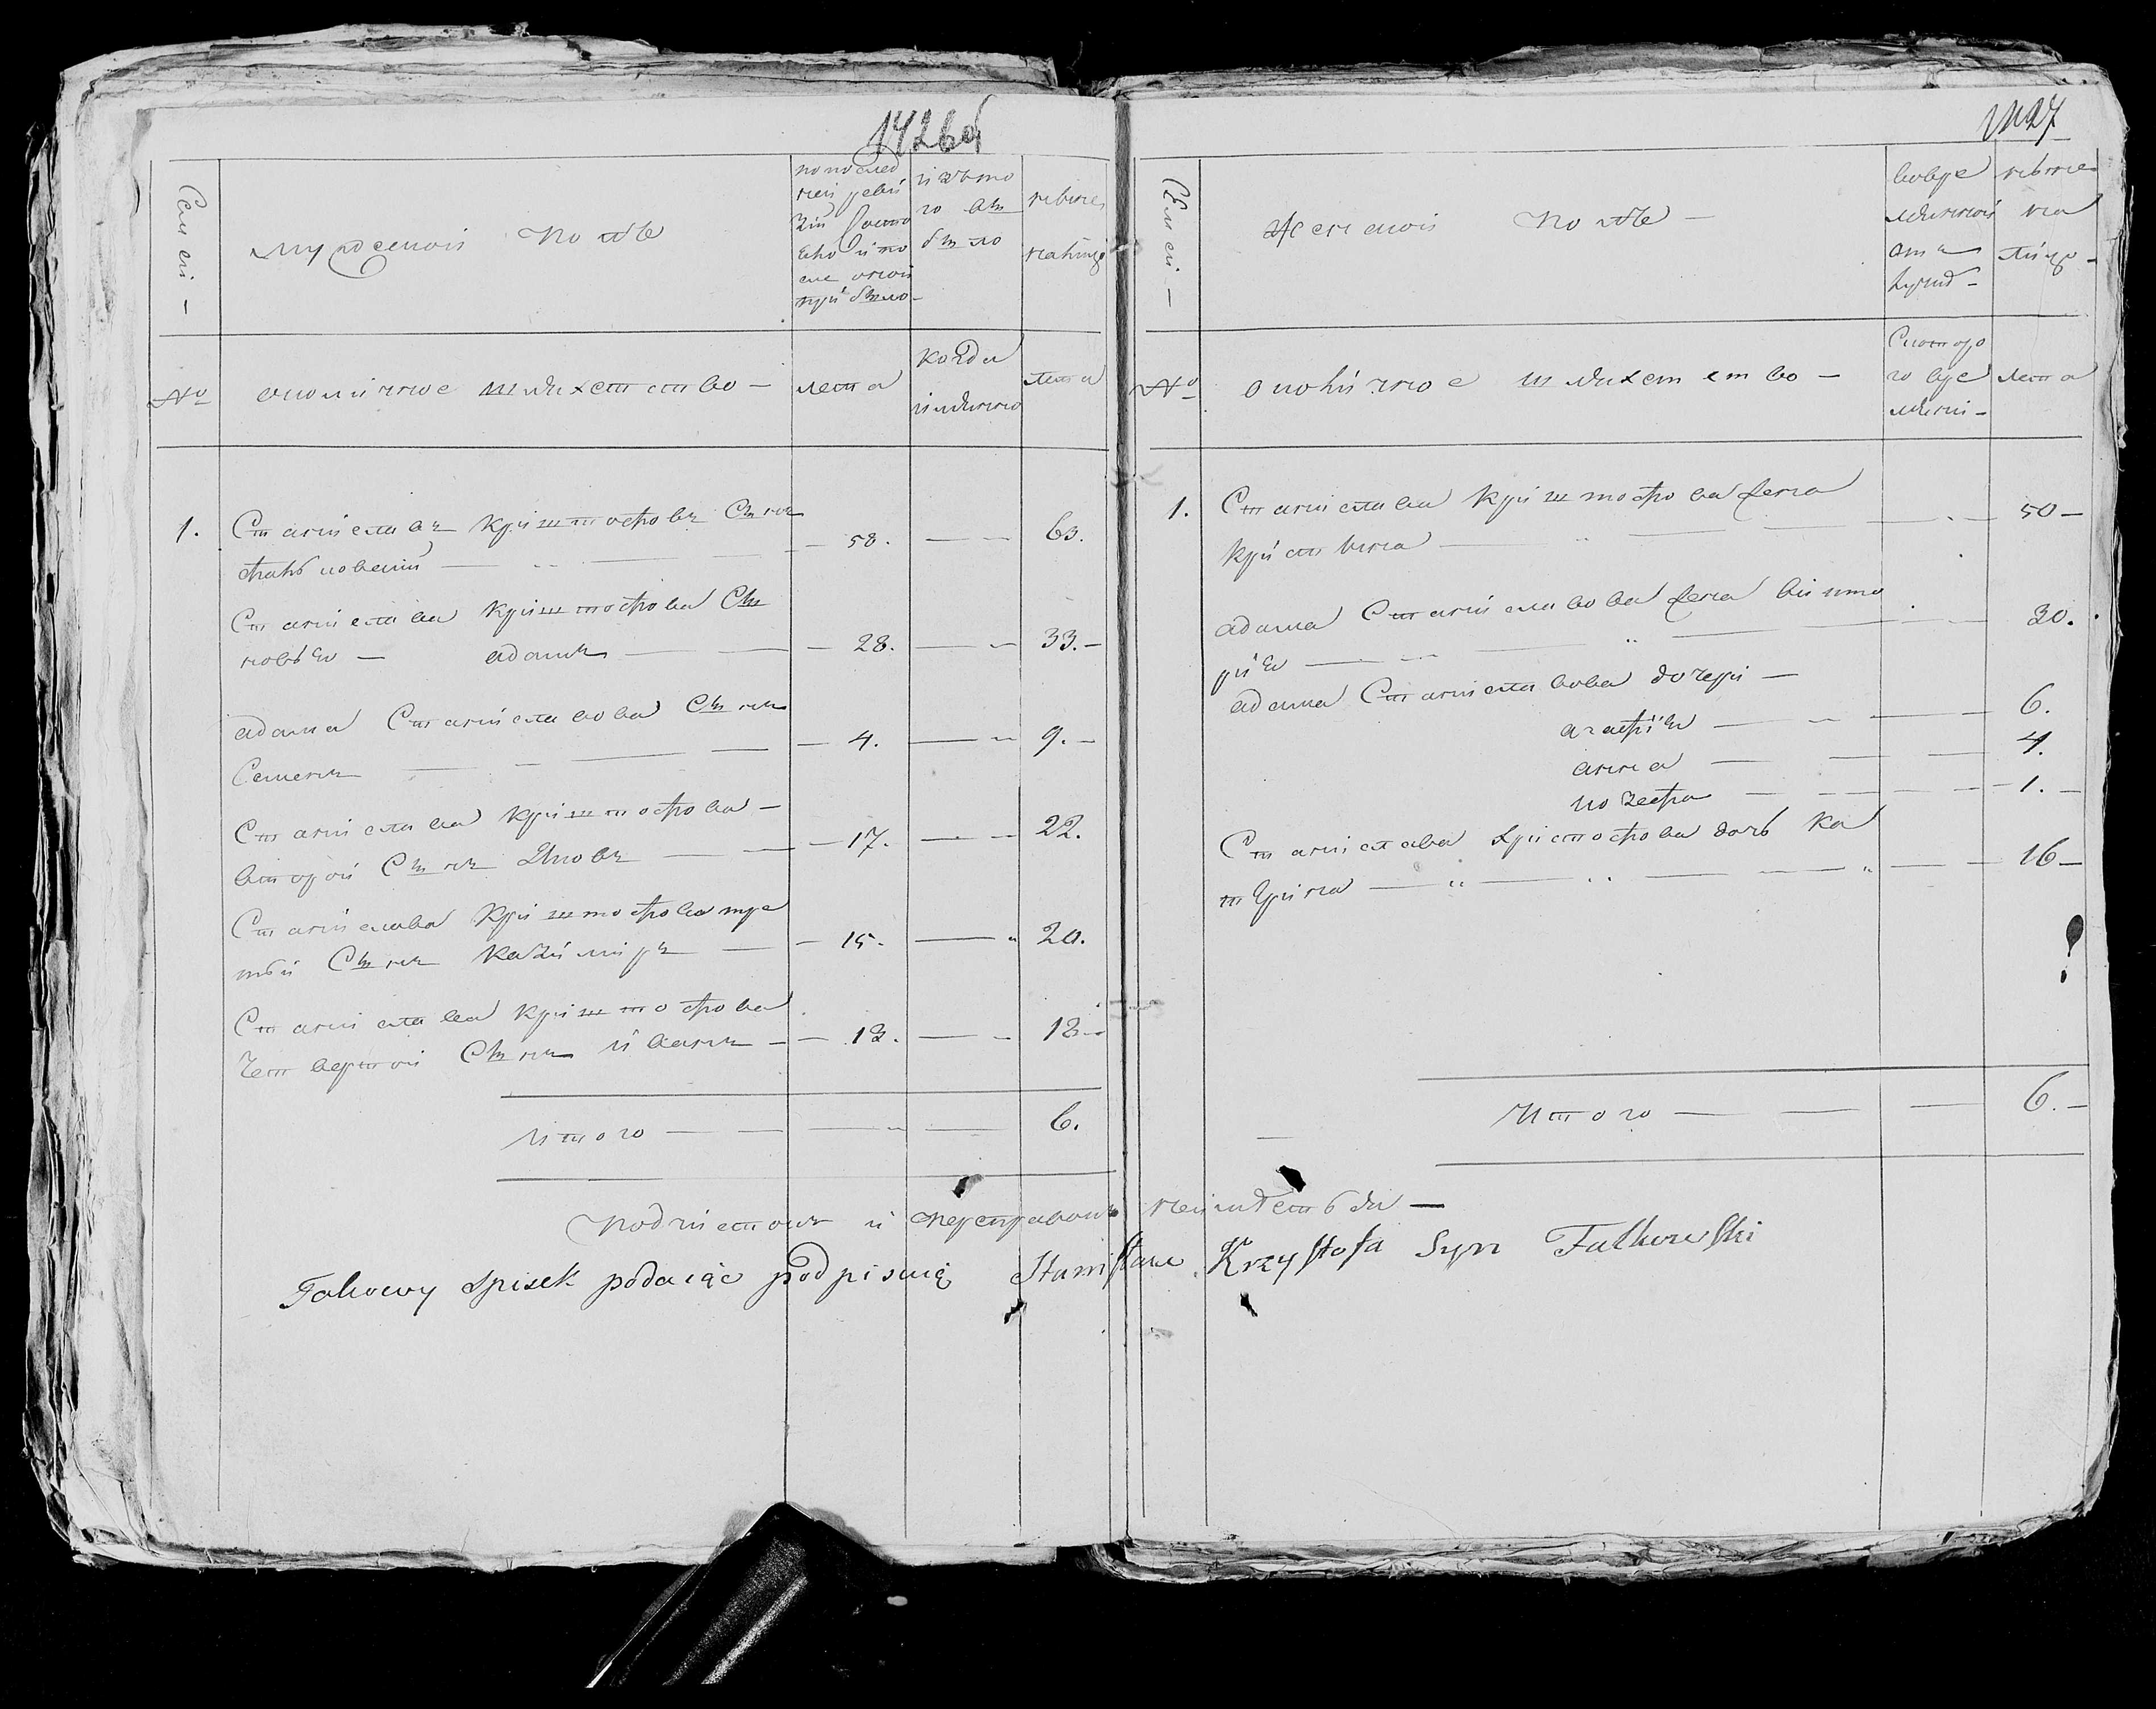 1426об
Семьи —
мужеской полъ
по послед
ней реви
зіи состо
яло и по
сле оной
прибыло —
изъ то
го вы
было
ныне
налицо
№
околичное шляхетство —
лета
когда
именно
лета
1. Станиславъ криштофовъ Сынъ
фальковскій — 58. — 63.
Станислава криштофова Сы
новья — адамъ — 28. — 33. —
адама Станиславова Сынъ
Семенъ — 4. — 9. —
Станислава криштофова —
второй Сынъ — 17. — 22.
Станислава криштофова тре
тьй Сынъ казиміръ — 15. — 20.
Станислава криштофова
четвертой Сынъ иванъ — 13. — 18 —
итого — 6.
1427
Семьи —
Женской полъ —
вовре
менной
отлу
ныне
на
лицо —
№
околичное шляхетство —
С которо
го вре
мени —
лета
1. Станислава криштофова жена
кристина — 50 —
адама Станиславова жена викто
рія — 30.
адама Станиславова дочери —
агафія — 6.
анна — 4.
юзефа — 1. —
Станислава христофова дочь ка
терина — 16 —
Итого — 6. —
Takowy Spisek podaiąc podpisuię Stanisław Krzysztofa Syn Falkowski